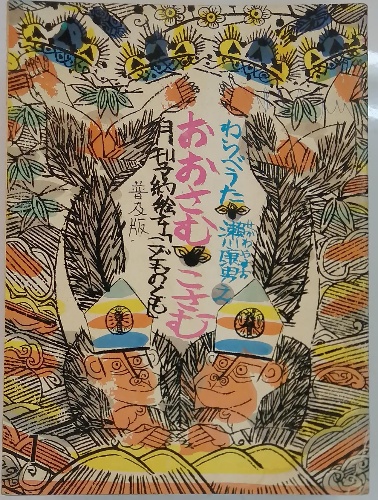 わらべうた
瀬川康男 え
せがわやすお
おおさむ こさむ
月刊予約絵本「こどものとも」
普及版
1